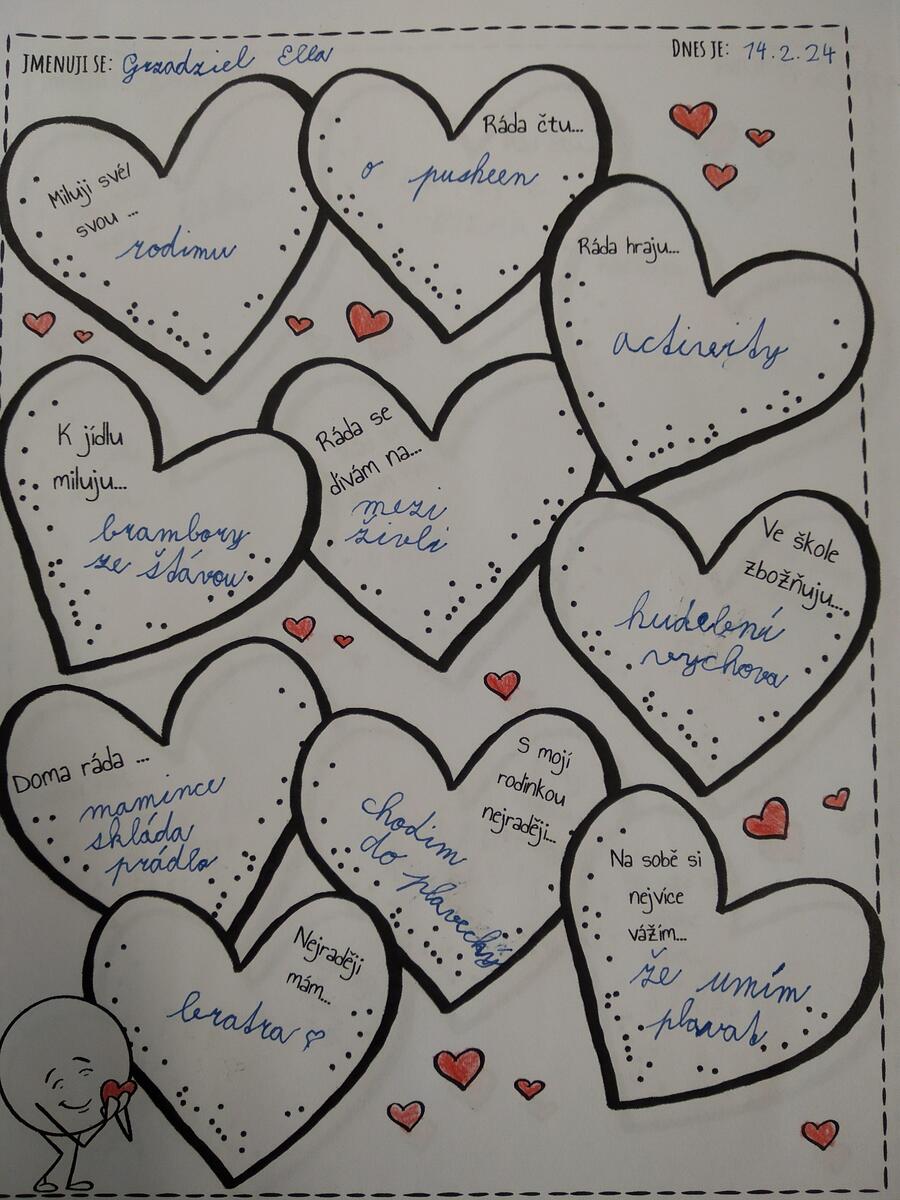 JMENUJI SE: Grzadziel Ella
DNES JE: 14.2.24
Miluji své/
svou ...
rodimu
Ráda čtu...
o pusheen
Ráda hraju...
activity
K jídlu
miluju...
brambory
ze šťávou
Ráda se
dívám na...
mezi
živli
Ve škole
zbožňuju...
hudební
vychova
Doma ráda ...
mamince
skláda
prádlo
S mojí
rodinkou
nejraději...
chodim
do plavečký
Na sobě si
nejvíce
vážím...
že umím
plavat
Nejraději
mám...
bratra